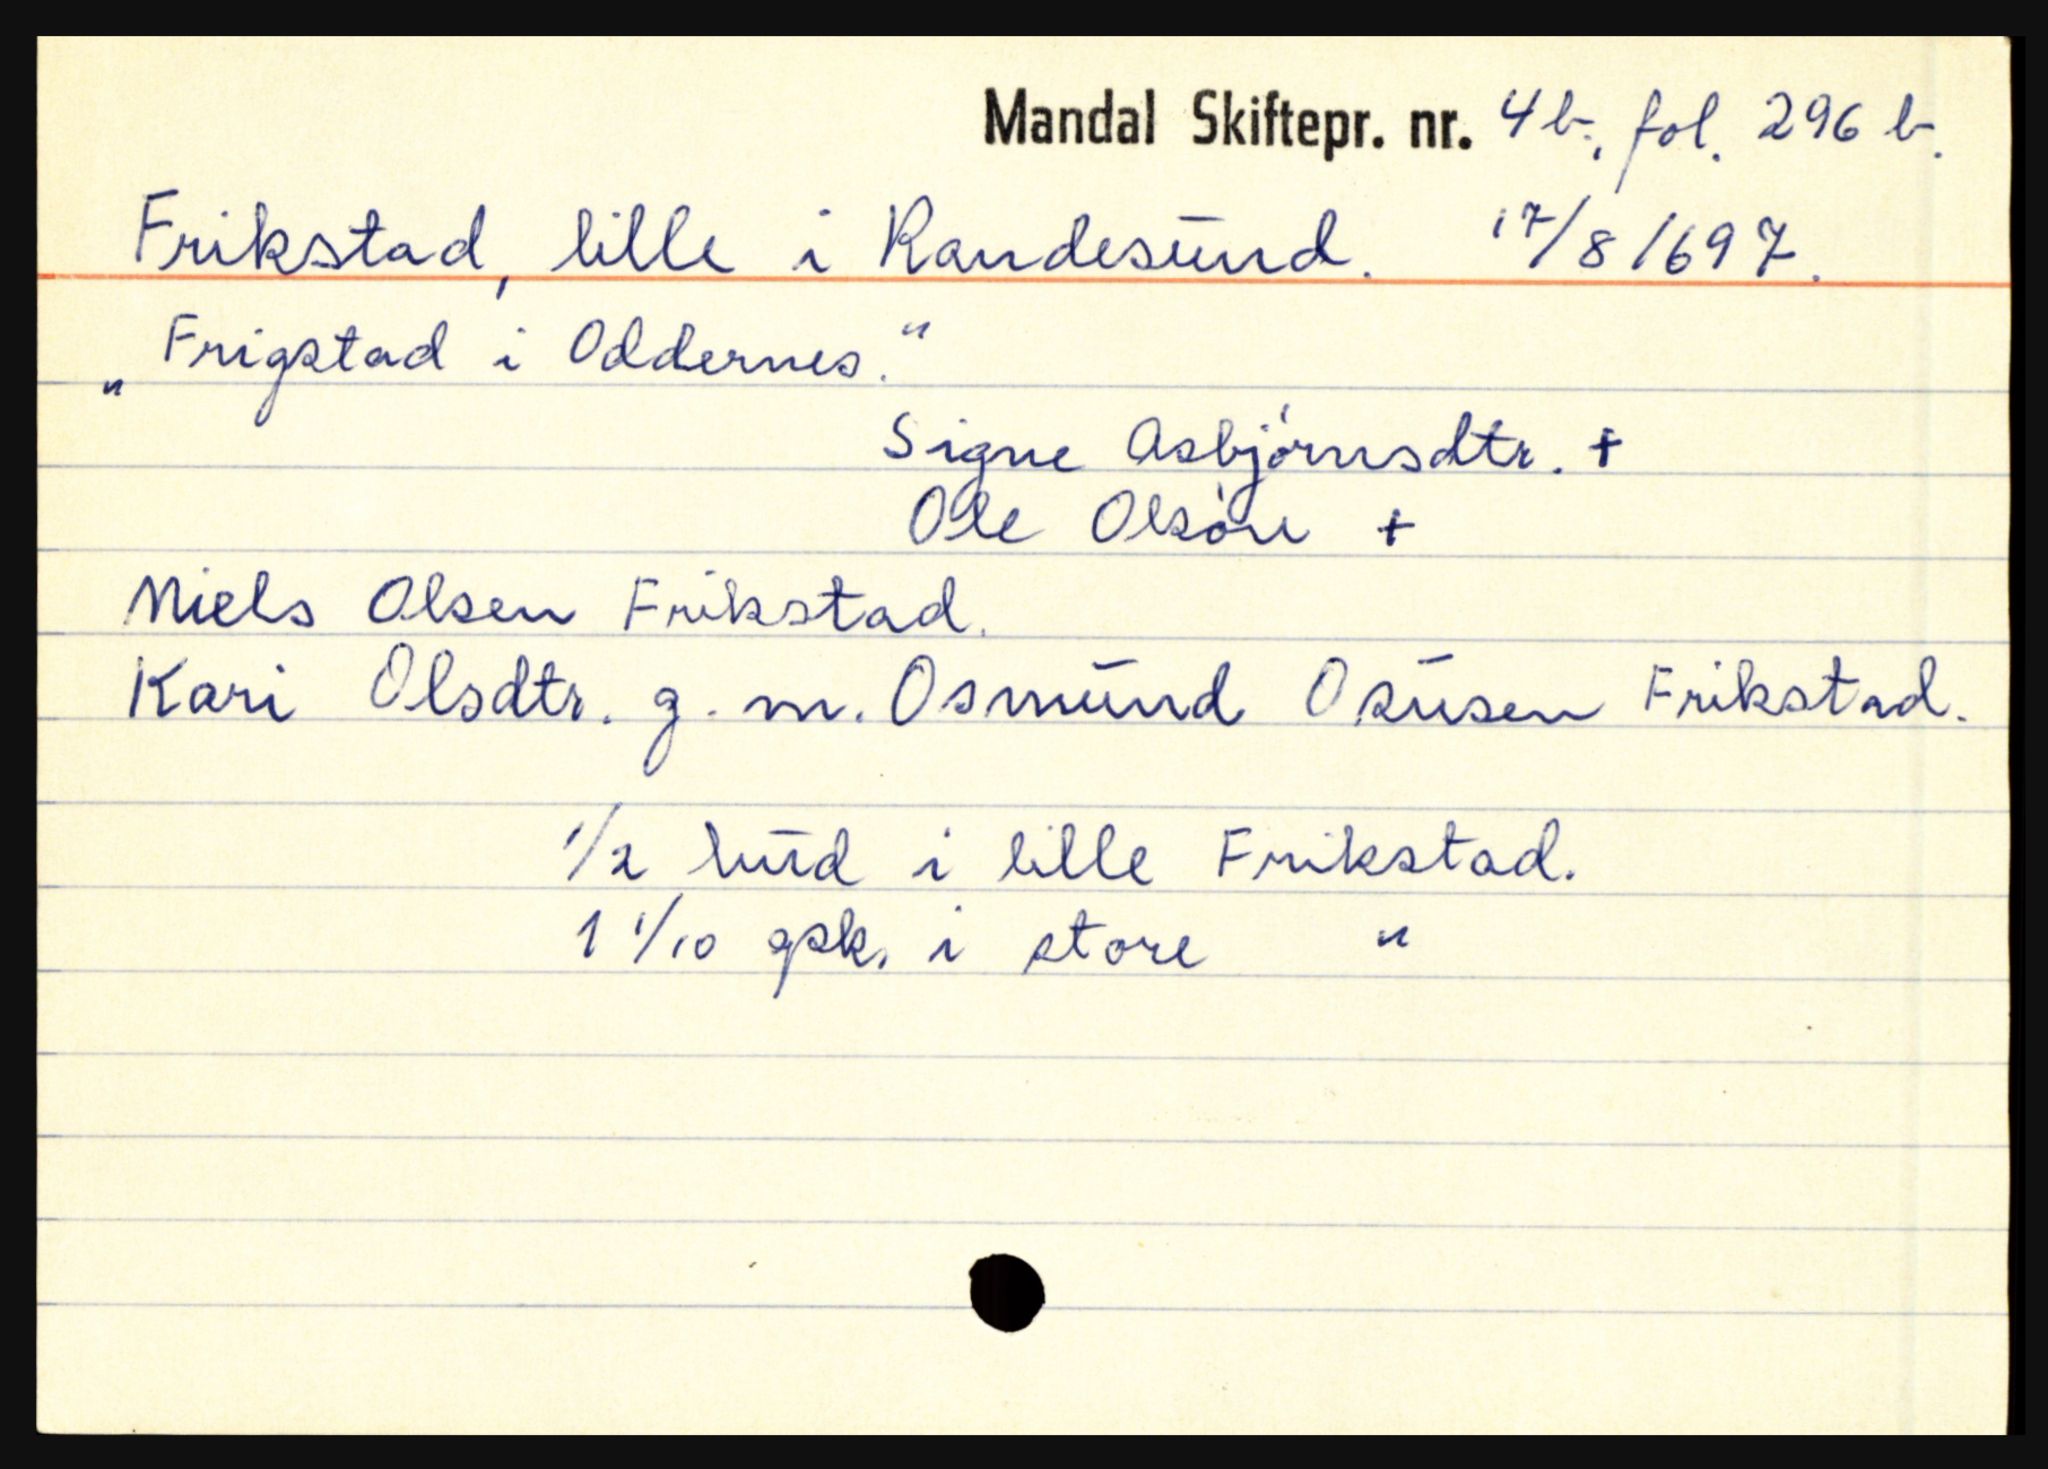 Mandal Skiftepr. nr. 4b., fol. 296 b.
Frikstad, lille i Randesund. 17/8 1697.
„Frigstad i Oddernes."
Signe Asbjörnsdtr. +
Ole Olsön +
Niels Olsen Frikstad.
Kari Olsdtr. g. m. Osmund Osusen Frikstad.
1/2 hud i lille Frikstad.
1 1/10 gsk. i store "